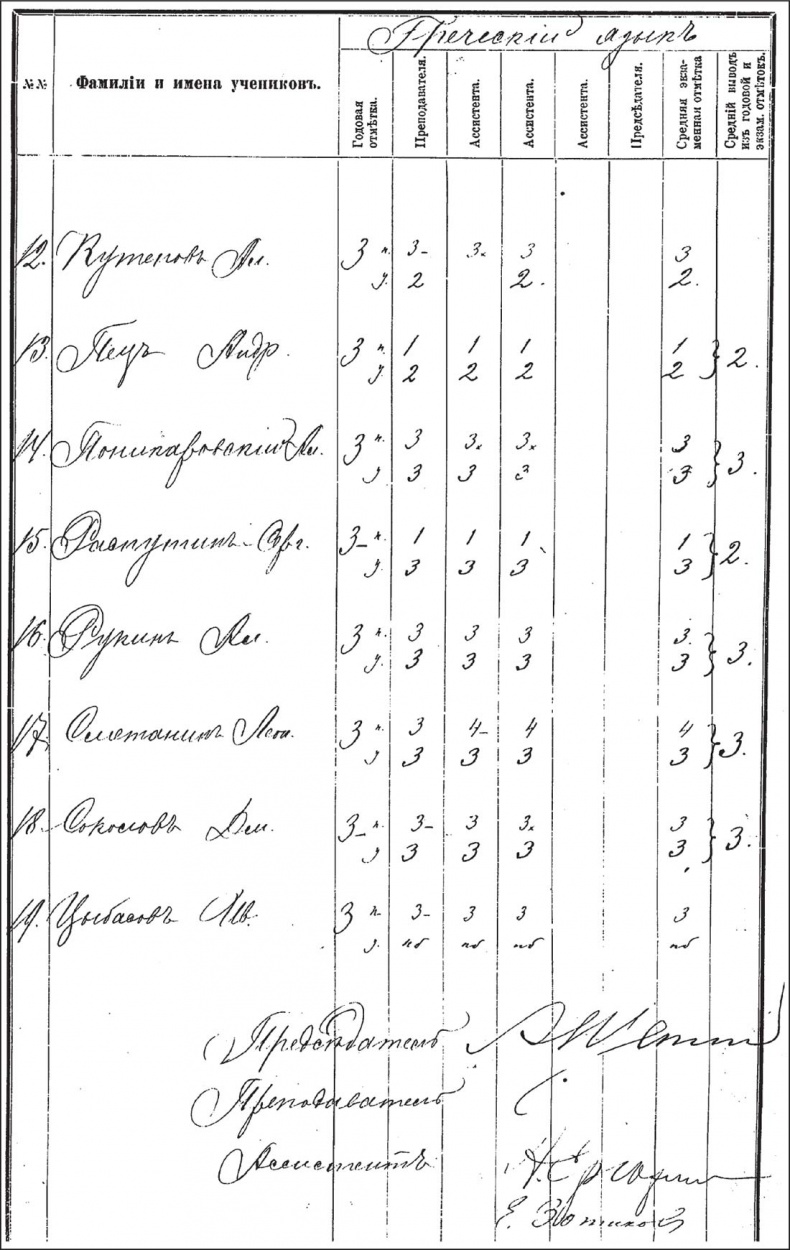 Греческій языкъ
№№ Фамиліи и имена учениковъ. Годовая отмѣтка. Преподавателя. Ассистента. Ассистента. Ассистента. Предсѣдателя. Средняя экза-менная отмѣтка Средній выводъ изъ годовой и экзам. отмѣтокъ.
12. Кутеповъ Ал. 3 п. 3- 3× 3 3
у. 2 2. 2.
13. Пецъ Андр. 3 п. 1 1 1 1 } 2.
у. 2 2 2 2
14. Поникаровскій Ал. 3 п. 3 3× 3× 3 } 3.
у 3 3 3 3
15. Распутинъ 3- п. 1 1 1 1 } 2.
у. 3 3 3 3
16. Рукинъ Ал. 3 п. 3 3 3 3. } 3.
у. 3 3 3 3
17. Сметанинъ Леон. 3 п. 3 4- 4 4 } 3.
у 3 3 3 3
18. Соколовъ Дм. 3- п. 3- 3 3× 3 } 3.
у 3 3 3 3.
19. Цыбасовъ 3 п. 3- 3 3 3
у. нб нб нб нб
Предсѣдатель
Преподаватель
Ассистентъ